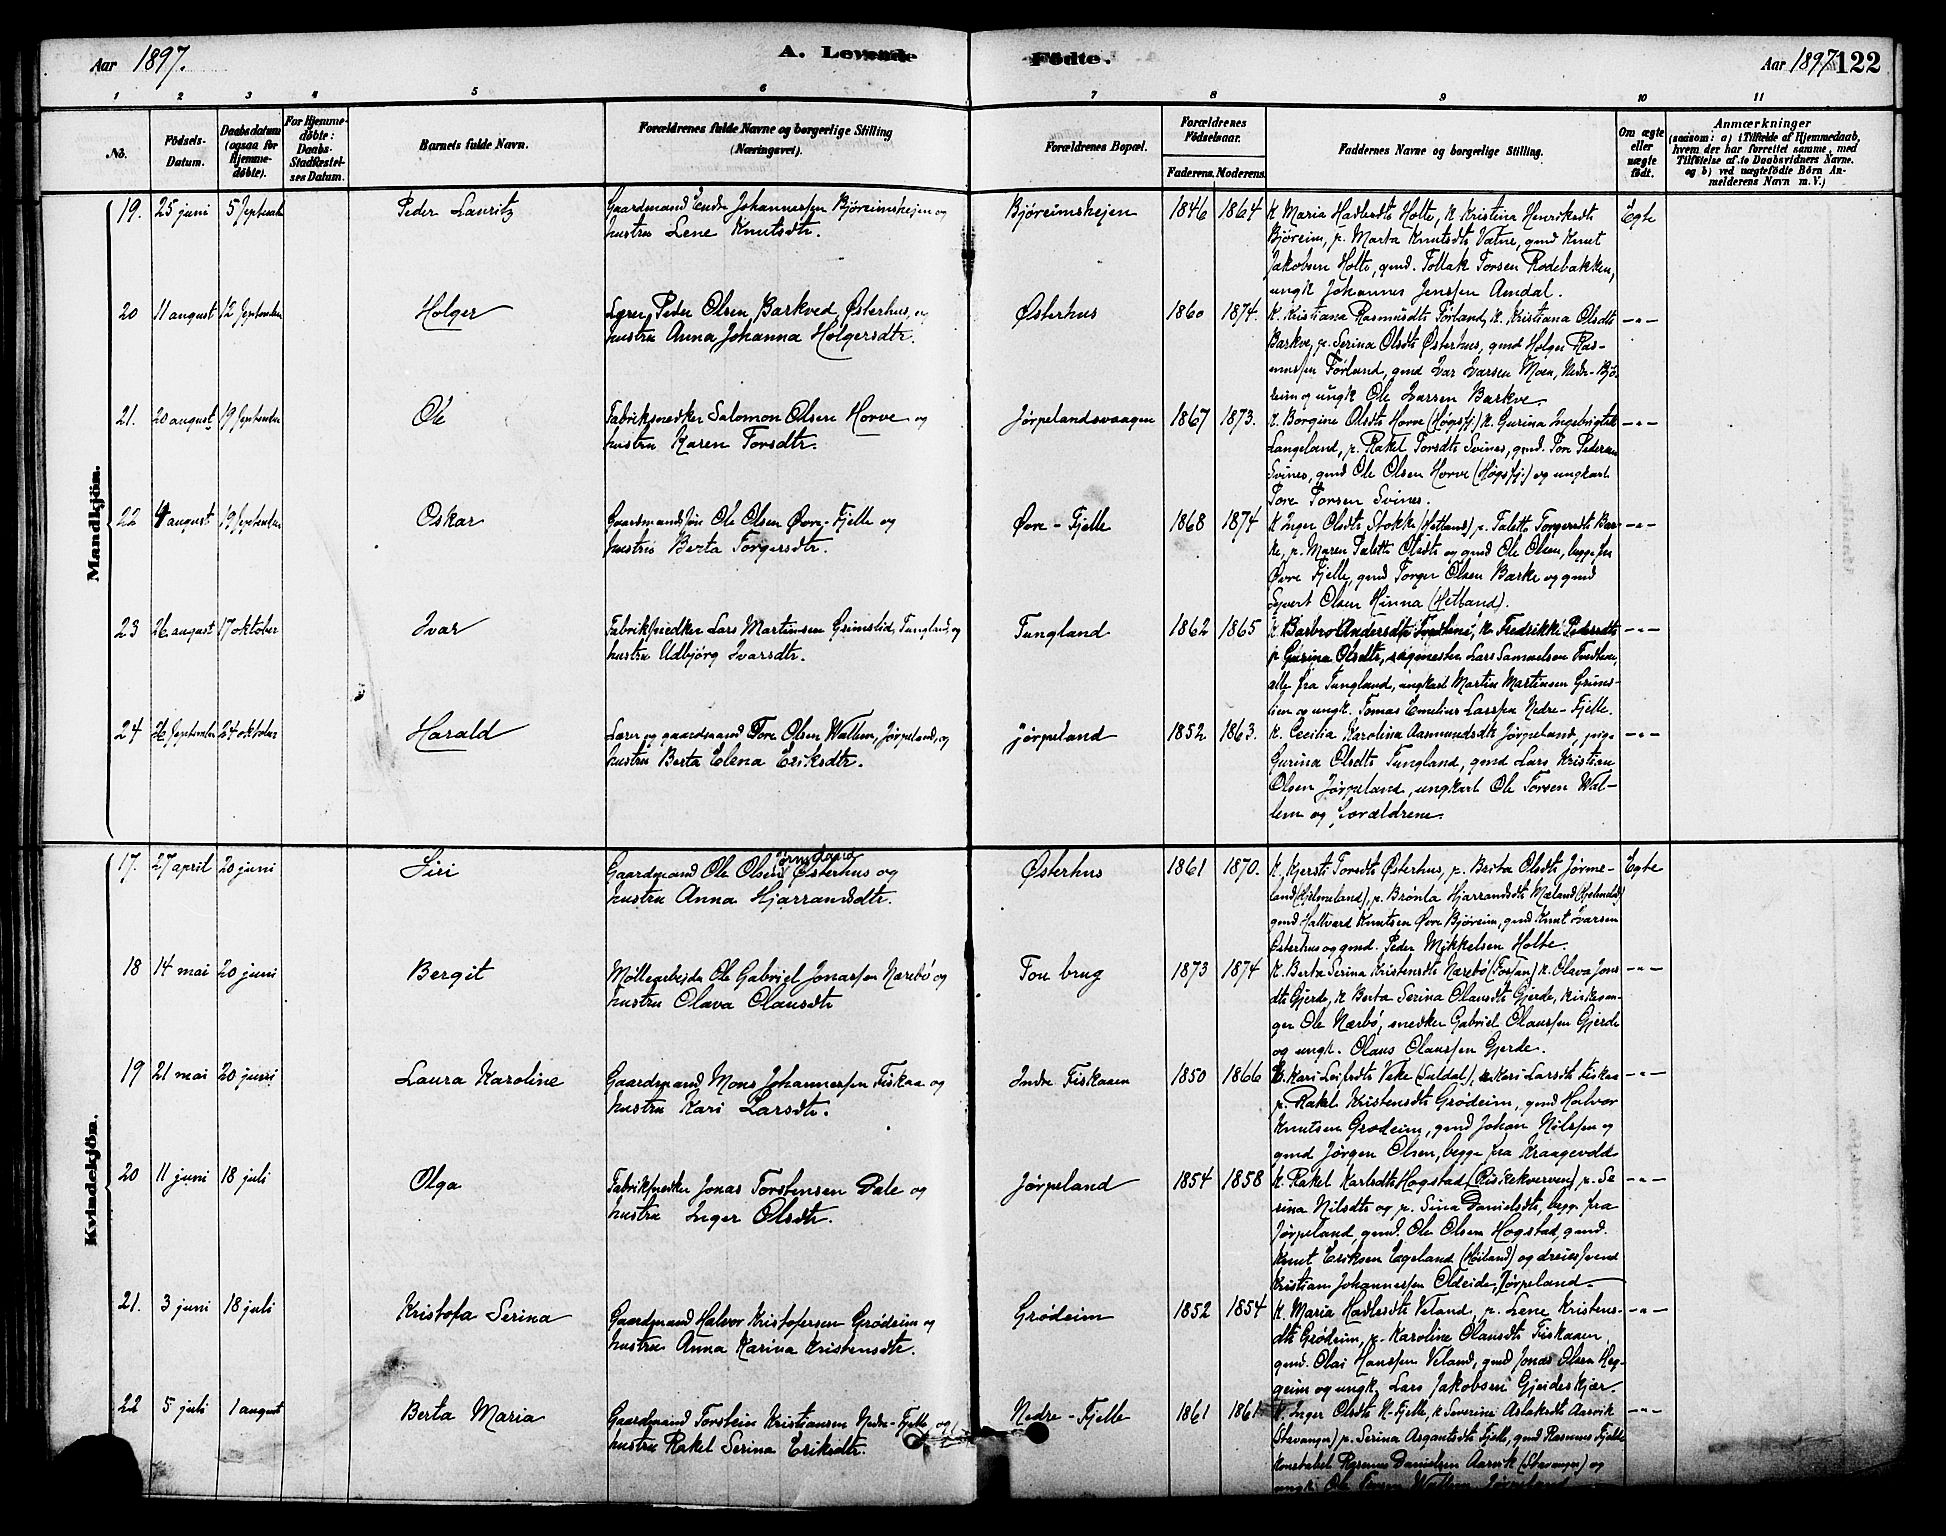 Aar 1897.
A. Levende
Födte.
Aar 1897
122
1 2 3 4 5 6 7 8 9 10 11
No.
Födsels-
Datum.
Daabsdatum
(ogsaa for
Hjemme-
döbte).
For Hjemme-
döbte:
Daabs-
Stadfæstel-
ses Datum.
Barnets fulde Navn.
Forældrenes fulde Navne og borgerlige Stilling
(Næringsvei).
Forældrenes Bopæl.
Forældrenes
Födselsaar.
Faderens. Moderens.
Faddernes Navne og borgerlige Stilling.
Om ægte
eller
uægte
födt.
Anmærkninger
(saasom: a) i Tilfælde af Hjemmedaab,
hvem der har forrettet samme, med
Tilföielse af to Daabsvidners Navne.
og b) ved uægtefödte Börn An-
melderens Navn m. V.)
Mandkjön.
19. 25 juni 5 September Peder Lauritz
Gaardmand Endre Johannessen Björeimsheien og
hustru Lene Knutsdtr.
Björeimshejen 1846 1864
K Maria Hadlesdtr Holte, K Kristina Henriksdtr
Björeim, p. Marta Knutsdtr Vatne, gmd Knut
Jakobsen Holte, gmd. Tollak Torsen Rodebakken,
ungk Johannes Jenssen Amdal.
Egte
20 11 august 12 September Holger
Lærer Peder Olsen Barkved, Østerhus, og
hustru Anna Johanna Holgersdtr.
Østerhus 1860 1874.
K. Kristiana Rasmusdtr Förland, K. Kristiana Olsdtr
Barkve, p. Serina Olsdtr Østerhus, gmd Holger Ras-
mussen Förland, gmd Ivar Larsen Moen, Nedre-Bjö-
reim og ungk Ole Larsen Barkve.
—"—
21. 20 august 19 September Ole
Fabriksnedker Salomon Olsen Horve og
hustru Karen Torsdtr.
Jørpelandsvaagen 1867 1873.
K. Borgine Olsdtr Horve (Høgsfj.) K. Gurina Ingebrigtsdtr
Langeland, p. Rakel Torsdtr Svines, gmd. Tore Pedersen
Svines, gmd Ole Olsen Horve (Høgsfj.) og ungkarl
Tore Torsen Svines.
—"—
22 4 august 19 September Oskar
Gaardmandssön Ole Olsen Øvre-Fjelle og
hustru Berta Torgersdtr.
Øvre-Fjelle 1868 1874
K. Inger Olsdtr Stokke (Hetland), p. Talette Torgersdtr Bar-
ke, p. Maren Talette Olsdtr og gmd Ole Olsen, begge fra
Øvre Fjelle, gmd Torger Olsen Barke og gmd
Syvert Olsen Hinna (Hetland).
—"—
23 26 august 17 oktober Ivar
Fabriksnedker Lars Martinsen Grimslid, Tungland, og
hustru Udbjörg Ivarsdtr.
Tungland 1862 1865
K. Barbro Andersdtr Tvedtene, K. Fredrikke Pedersdtr
p Gurina Olsdtr, sagmester Lars Samuelsen Tvedtene,
alle fra Tungland, ungkarl Martin Martinsen Grims-
lien og ungk. Tomas Emelius Larssen Nedre-Fjelle.
—"—
24 26 September 24 oktober Harald
Lærer og gaardmand Tore Olsen Wallem, Jørpeland, og
hustru Berta Elena Eriksdtr.
Jørpeland 1852 1863.
K. Cecilia Karolina Aasmundsdtr Jørpeland, pige
Gurina Olsdtr Tungland, gmd Lars Kristian
Olsen Jørpeland, ungkarl Ole Torsen Wal-
lem og Forældrene.
—"—
Kvindekjön.
17. 27 april 20 juni Siri
Gaardmand Ole Olsen Østerhus og
hustru Anna Hjarrandsdtr.
Østerhus 1861 1870.
K. Kjersti Torsdtr Østerhus, p. Brita Olsdtr Jörme-
land (Hjelmeland), p. Brönla Hjarrandsdtr Mæland (Hjelmeland)
gmd Hallvard Knutsen Øvre Björeim, gmd Knut Ivarsen
Østerhus og gmd. Peder Mikkelsen Holte.
Egte
18 14 mai 20 juni Bergit
Møllearbejder Ole Gabriel Jonassen Nærebö og
hustru Olava Olausdtr
Tou brug 1873 1874
K. Berta Serina Kristensdtr Nærebö (Fossan) K. Olava Jons-
dtr Gjerde, K Berta Serina Olausdtr Gjerde, kirkesan-
ger Ole Nærbö, snedker Gabriel Olaussen Gjerde
og ungk. Olaus Olaussen Gjerde.
—"—
19 21 mai 20 juni Laura Karoline
Gaardmand Mons Johannessen Fiskaa og
hustru Kari Larsdtr.
Indre Fiskaaen 1850 1866
K. Kari Leifsdtr Veke (Suldal), K Kari Larsdtr Fiskaa
p. Rakel Kristensdtr Grødeim, gmd Halvor
Knutsen Grødeim, gmd Johan Nilssen og
gmd Jørgen Olsen, begge fra Kraagevold
—"—
20 11 juni 18 juli Olga
Fabriksnedker Jonas Torstensen Dale og
hustru Inger Olsdtr.
Jørpeland 1854 1858
K. Rakel Karlsdtr Hogstad (Riskekverven) p. Se-
rina Nilsdtr og p. Sina Danielsdtr, begge fra
Jørpeland, gmd. Ole Olsen Hogstad, gmd.
Knut Eriksen Egeland (Høiland) og dreiersvend
Kristian Johannessen Oldeide, Jørpeland.
—"—
21. 3 juni 18 juli Kristofa Serina
Gaardmand Halvor Kristofersen Grødeim og
hustru Anna Karina Kristensdtr.
Grødeim 1852 1854
K. Maria Hadlesdtr Veland, p. Lene Kristens-
dtr Grødeim, p. Karoline Olausdtr Fiskaaen,
gmd. Olai Hanssen Veland, gmd Jonas Olsen Heg-
geim og ungk. Lars Jakobsen Gjeideskjær.
—"—
22 5 juli 1 august Berta Maria
Gaardmand Torstein Kristiansen Nedre-Fjelle, og
hustru Rakel Serina Eriksdtr.
Nedre-Fjelle 1861 1861
K. Inger Olsdtr N-Fjelle, K Severine Aslaksdtr Aarvik
(Stavanger) p. Serina Asgautsdtr Fjelle, gmd Rasmus Fjelle
konstabel Rasmus Danielsen Aarvik (Stavanger) og
ungk. Ole Torsen Wallem Jørpeland
—"—